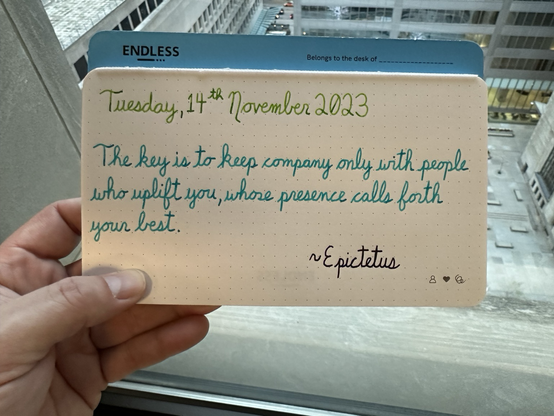 ENDLESS
Belongs to the desk of
Tuesday, 14th November 2023
The key is to keep company only with people
who uplift you, whose presence calls forth
your best.
~Epictetus